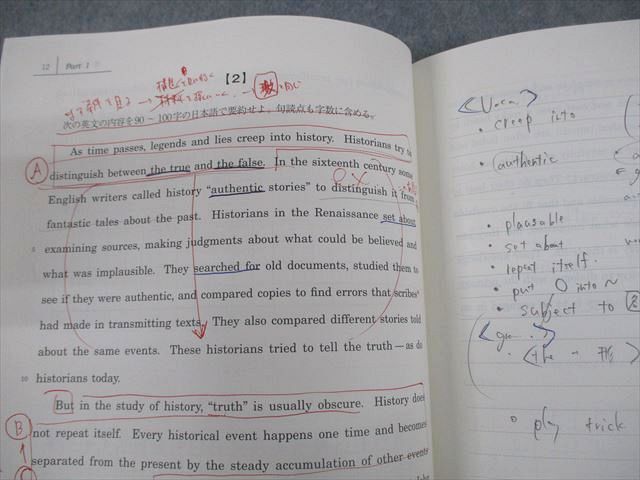 12 Part 1
【2】
次の英文の内容を90～100字の日本語で要約せよ。句読点も字数に含める。
As time passes, legends and lies creep into history. Historians try to
A
distinguish between the true and the false. In the sixteenth century some
English writers called history “authentic stories” to distinguish it from
fantastic tales about the past. Historians in the Renaissance set about
5 examining sources, making judgments about what could be believed and
what was implausible. They searched for old documents, studied them to
see if they were authentic, and compared copies to find errors that scribes
had made in transmitting texts. They also compared different stories told
about the same events. These historians tried to tell the truth—as do
10 historians today.
But in the study of history, “truth” is usually obscure. History does
B
not repeat itself. Every historical event happens one time and becomes
separated from the present by the steady accumulation of other events
<Voca>
・creep into
・authentic
・plausable
・set about
・repeat itself.
・put O into ~
・subject to
play trick